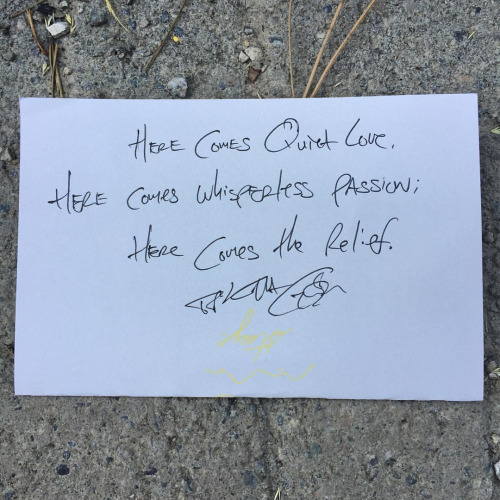 HERE COMES QUIET LOVE.
HERE COMES WHISPERLESS PASSION;
HERE COMES the Relief.